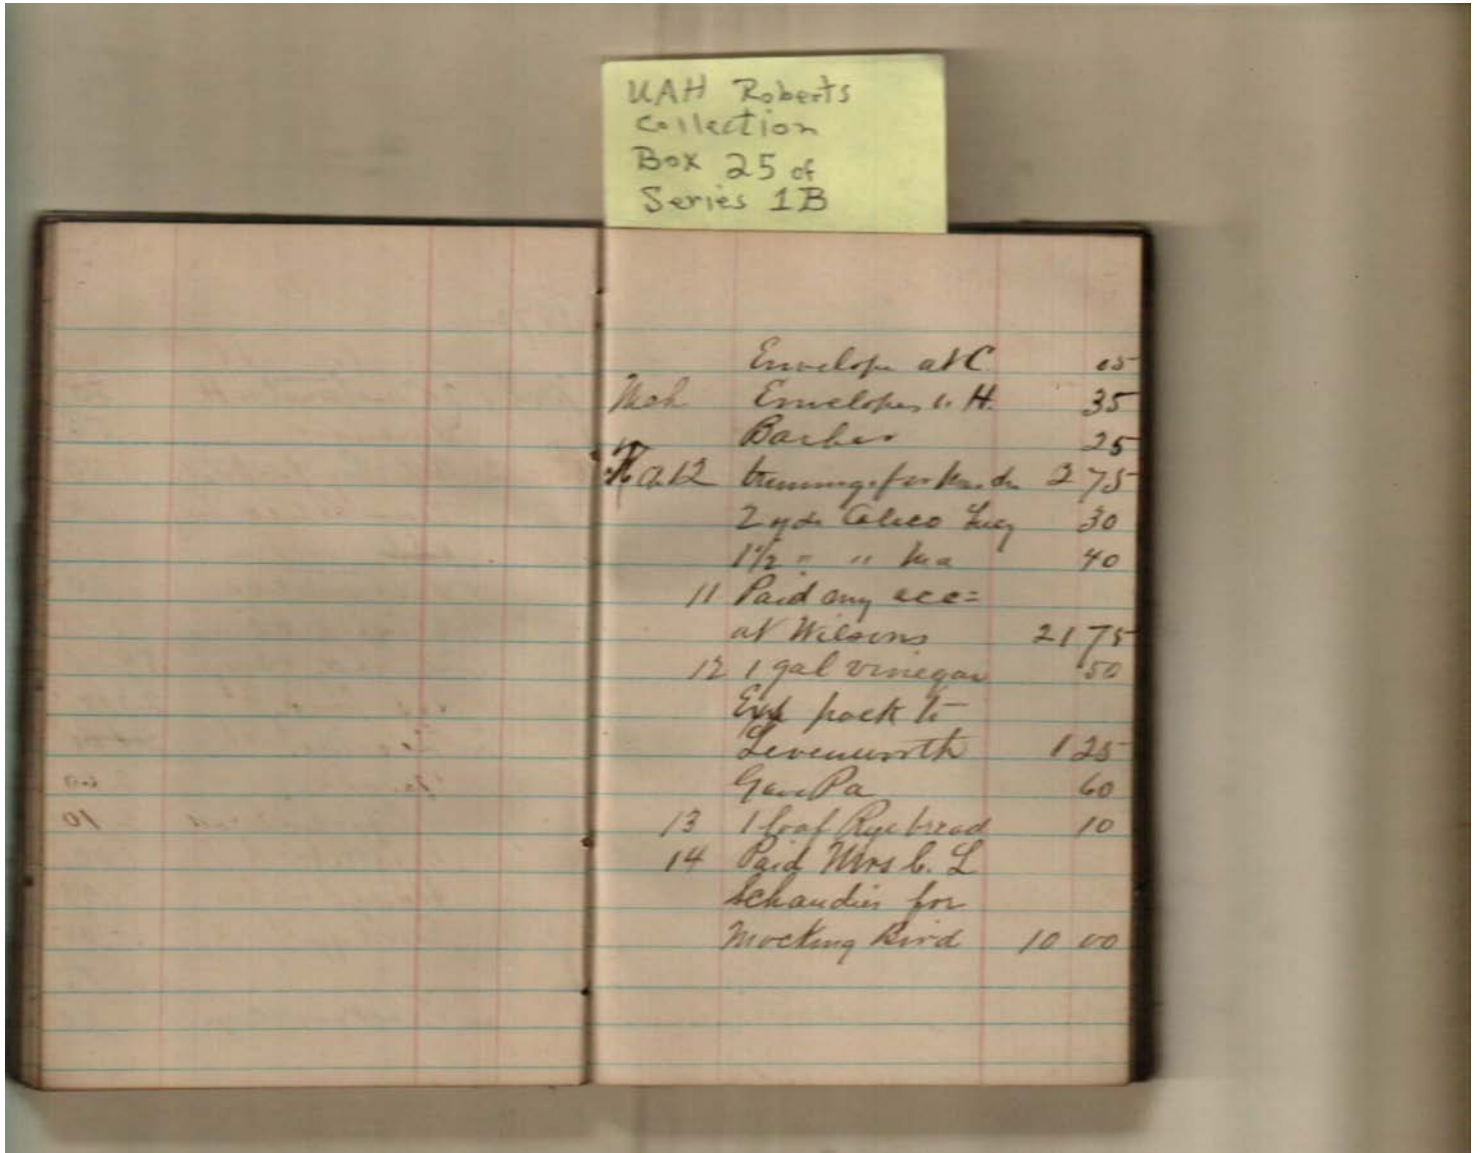 UAH Roberts
Collection
Box 25 of
Series 1B
Envelope at C. 05
Mch Envelopes H. 35
Barber 25
trimmings for 2 75
2 yds Calico Lucy 30
1 1/2 " " Ma 40
11 Paid my acc=
at Wilsons 21 75
12 1 gal vinegar 50
pack to
Levenworth 1 25
Gave Pa 60
13 1 loaf Rye bread 10
14 Paid Mrs C. L
Schaudies for
Mocking Bird 10 00